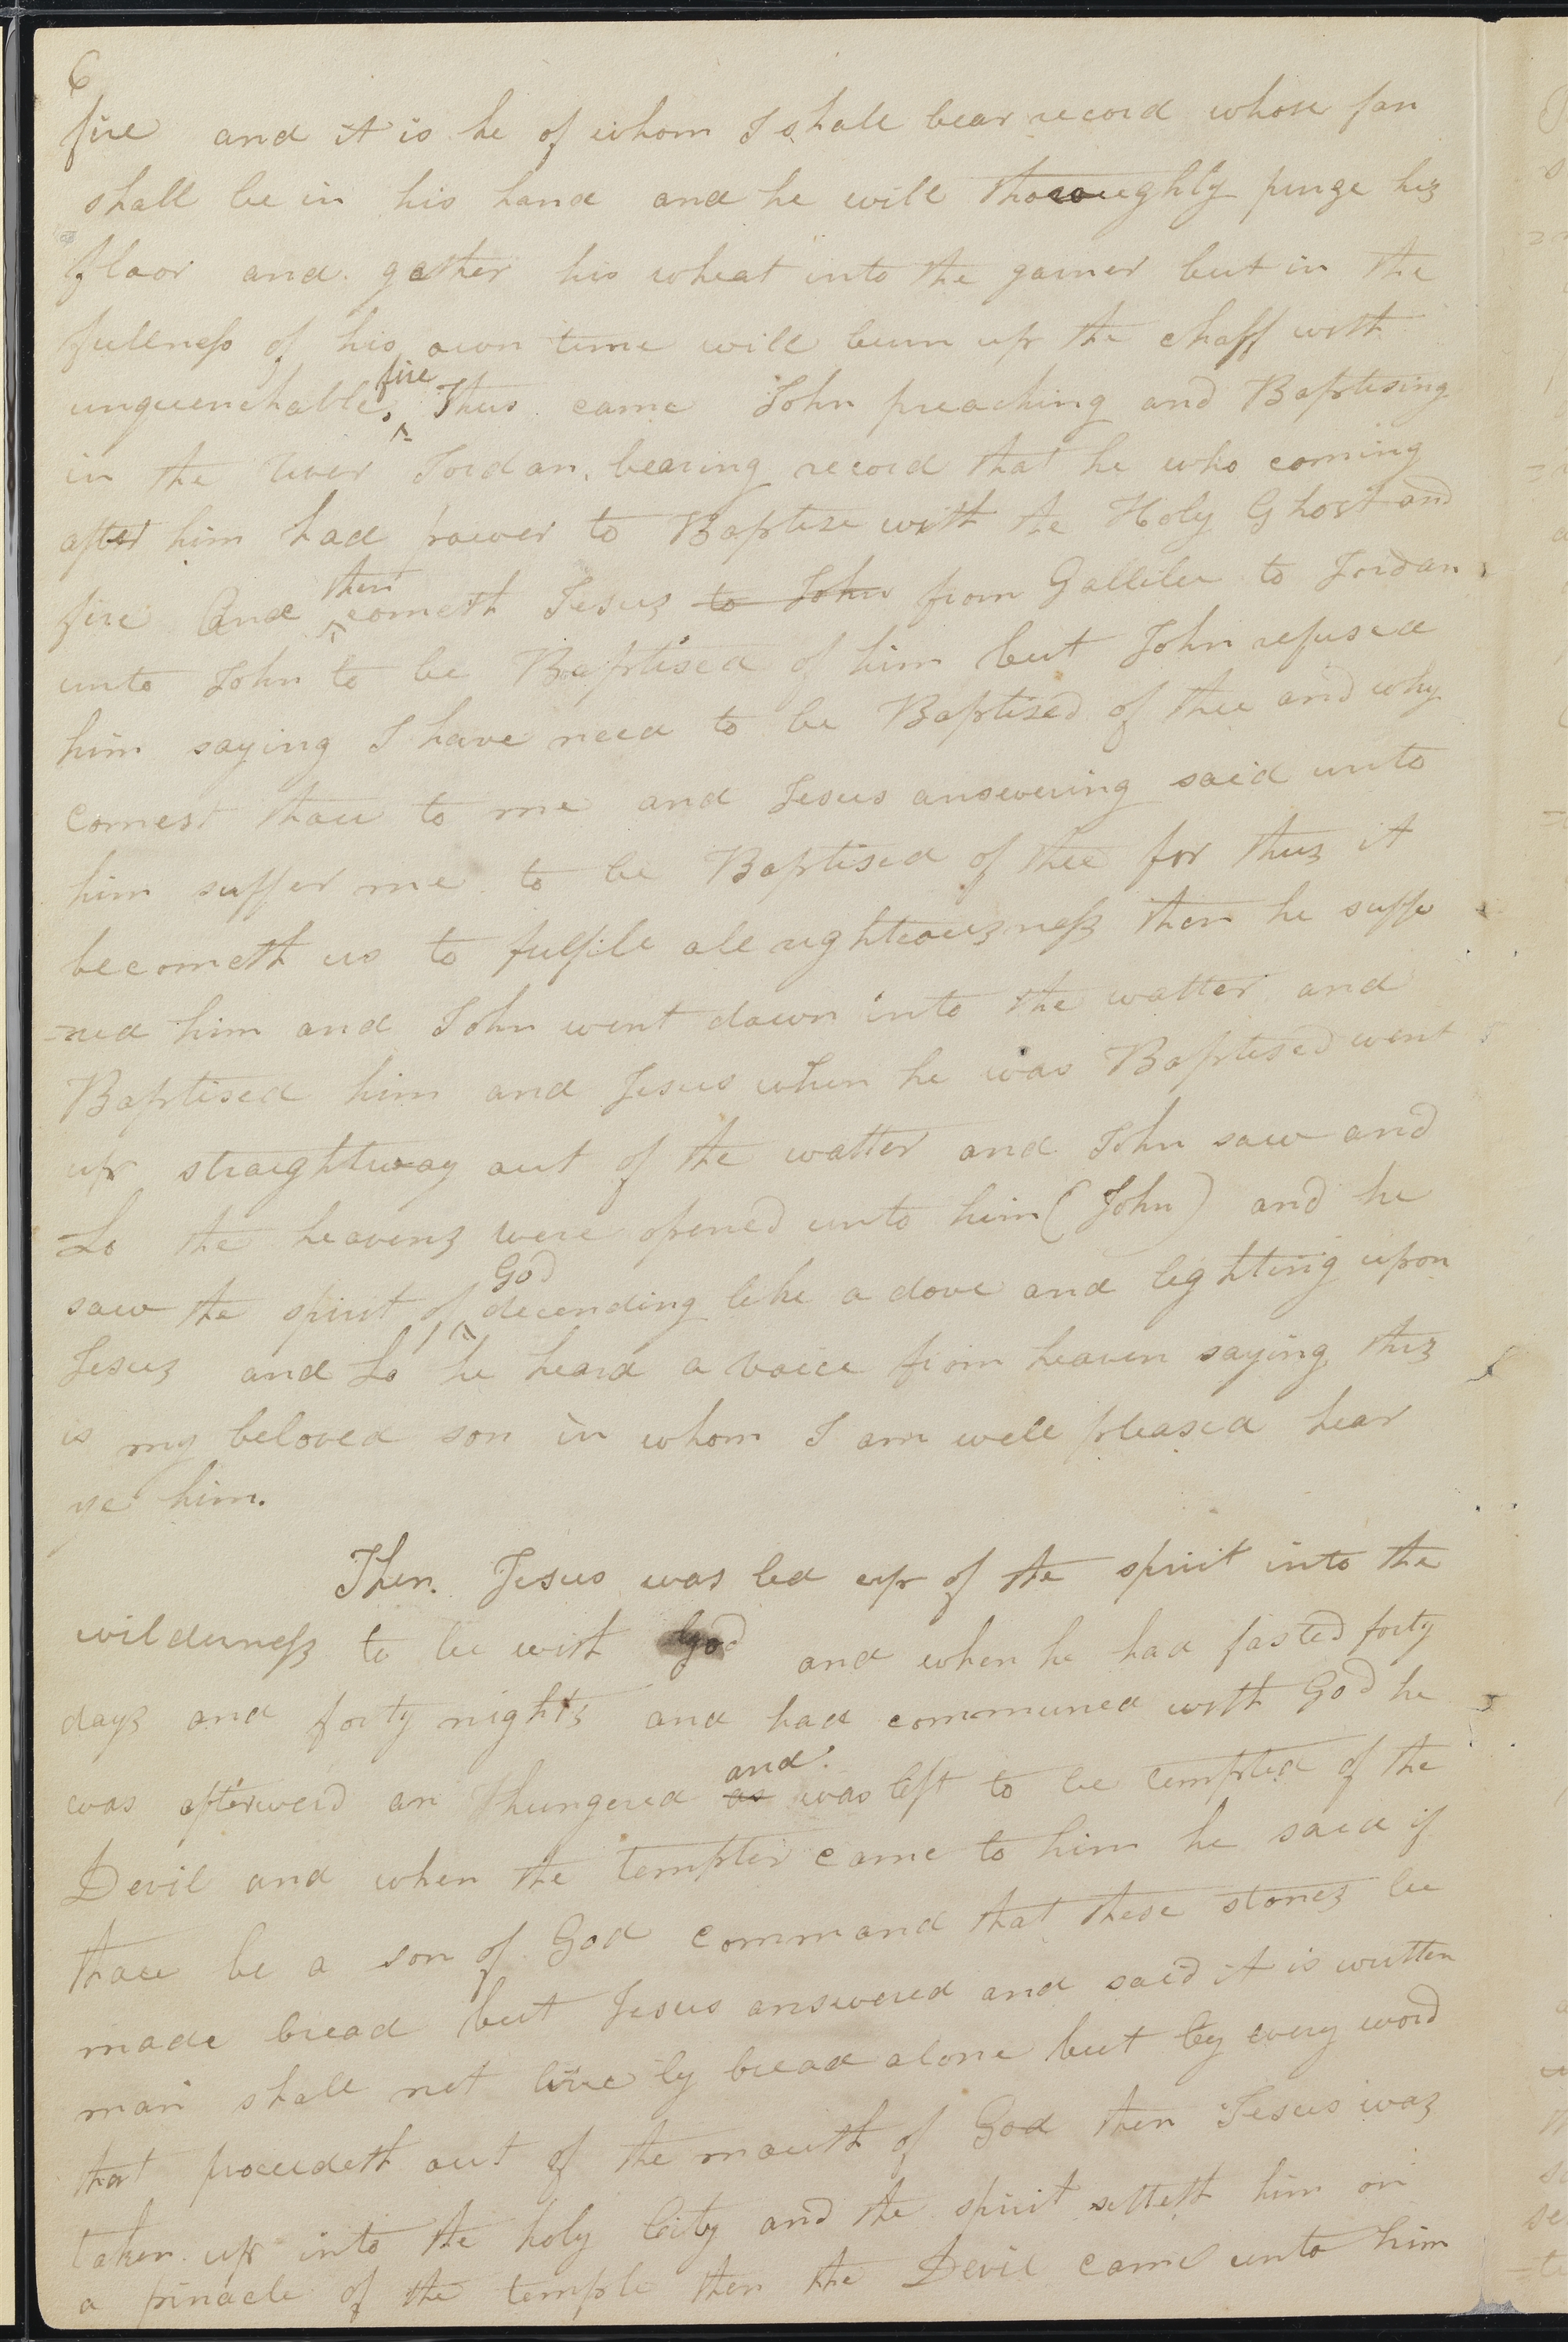 6
fire and it is he of whom I shall bear record whose fan
shall be in his hand and he will thoroughly purge his
floor and gather his wheat into the garner but in the
fullness of his own time will burn up the chaff with
fire
unquenchable. Thus came John preaching and Baptising
in the river Jordan, bearing record that he who coming
after him had power to Baptise with the Holy Ghost and
then
fire And cometh Jesus to John from Gallilee to Jordan
unto John to be Baptised of him but John refused
him saying I have need to be Baptised of thee and why
comest thou to me and Jesus answering said unto
him suffer me to be Baptised of thee for thus it
becometh us to fulfill all righteousness then he suffe
-red him and John went down into the watter and
Baptised him and Jesus when he was Baptised went
up straightway out of the watter and John saw and
Lo the heavens were opened unto him (John) and he
God
saw the spirit of decending like a dove and lighting upon
Jesus and Lo he heard a voice from heaven saying this
is my beloved son in whom I am well pleased hear
ye him.
Then Jesus was led up of the spirit into the
wilderness to be with God and when he had fasted forty
days and forty nights and had communed with God he
and
was afterwerd an hungered as was left to be tempted of the
Devil and when the tempter came to him he said if
thou be a son of God command that these stones be
made bread but Jesus answered and said it is written
man shall not live by bread alone but by every word
that proceedeth out of the mouth of God then Jesus was
taken up into the holy City and the spirit setteth him on
a pinacle of the temple then the Devil came unto him